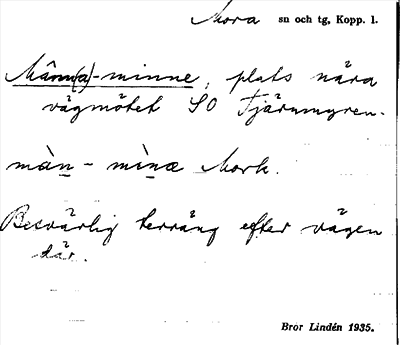 Mora sn och tg, Kopp. l.
Männ(a)-minne, plats nära
vägmötet SO Tjärnmyren.
màn - mìnæ Mork.
Besvärlig terräng efter vägen
där.
Bror Lindén 1935.